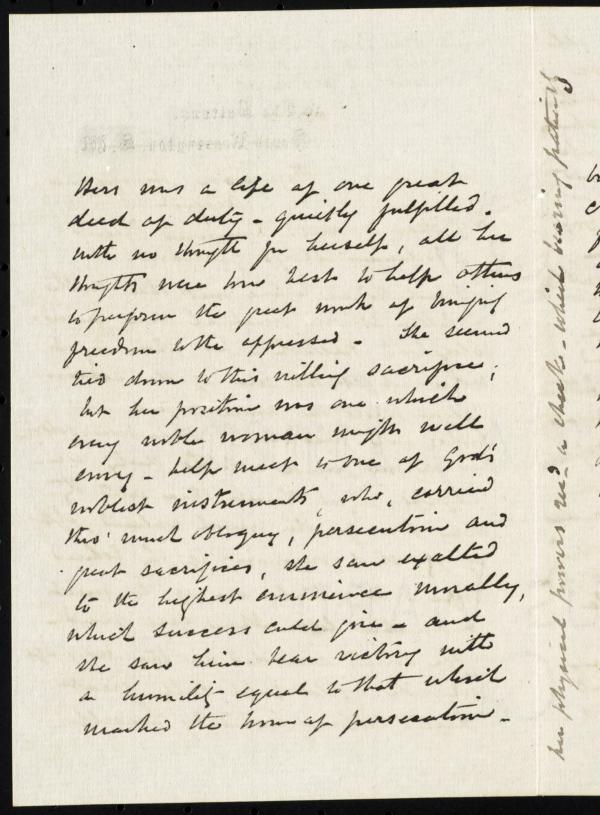 Hers was a life of one great
deed of duty - quietly fulfilled.
with no thought for herself, all her
thoughts were how best to help others
to perform the great work of bringing
freedom to the oppressed - She seemed
tied down to this willing sacrifice,
but her position was one which
every noble woman might well
envy - help meet to one of God's
noblest instruments, who, carried
thro' much obloquy, persecution and
great sacrifices, she saw exalted
to the highest eminence morally,
which success could give - and
she saw him bear victory with
a humility equal to that which
marked the hour of persecution -
her physical powers recd a check - which bearing patiently